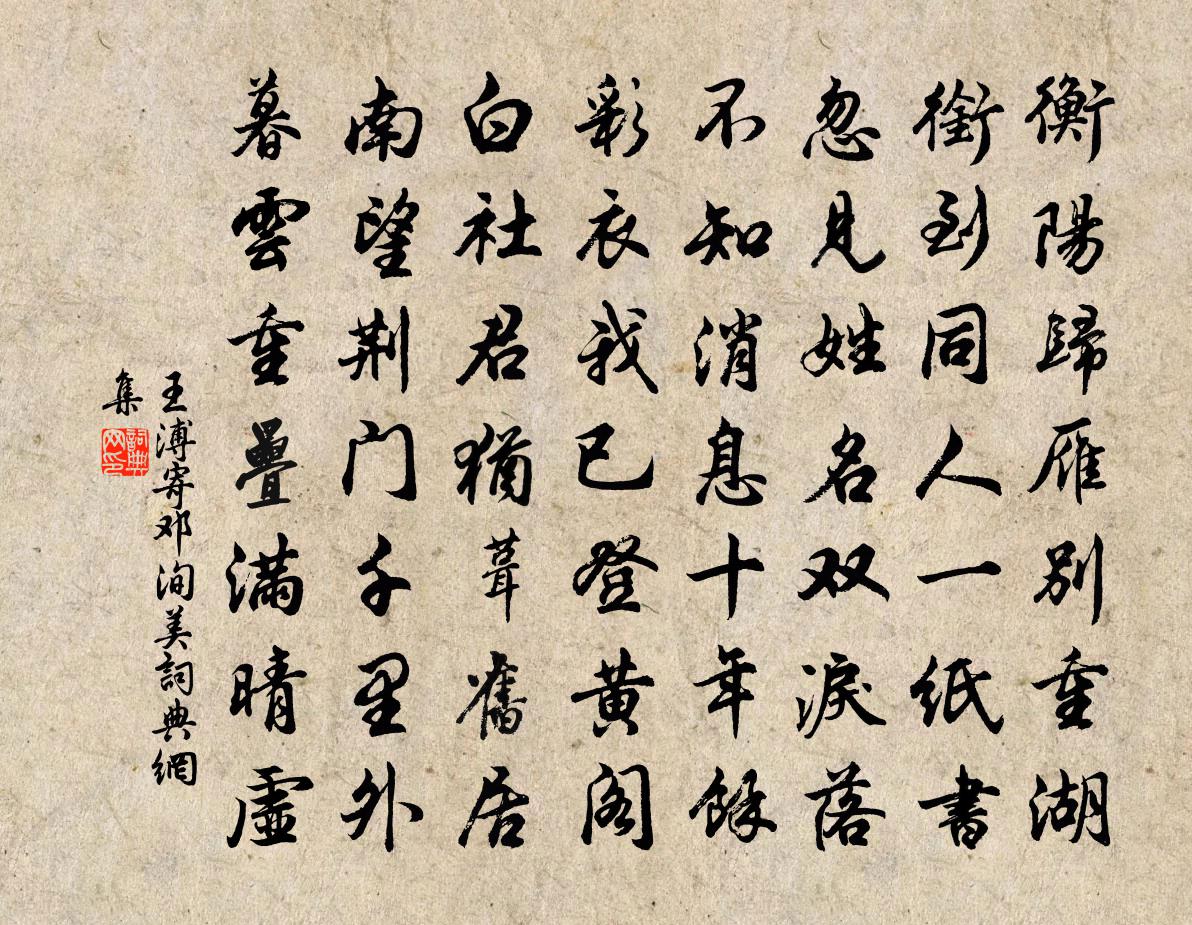 衡陽歸雁別重湖
銜到同人一紙書
忽見姓名双淚落
不知消息十年餘
彩衣我已登黃阁
白社君猶葺舊居
南望荆门千里外
暮雲重疊滿晴虛
王溥寄邓洵美詞典網
集
詞典
网印